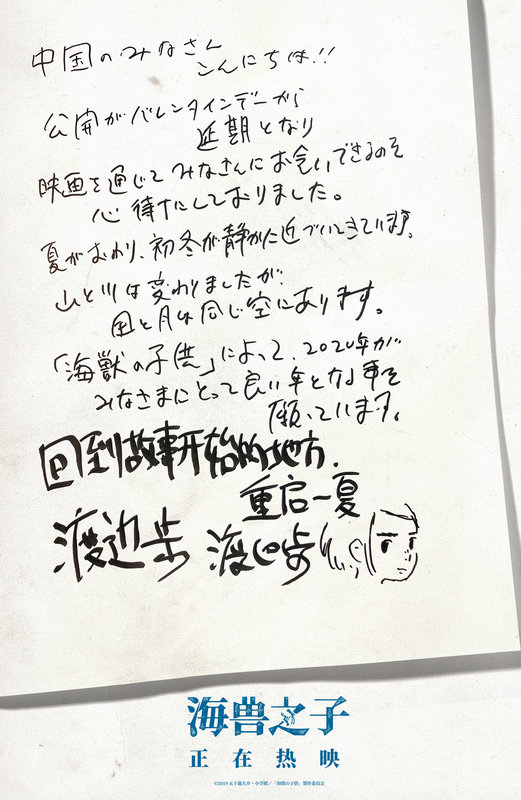 中国のみなさん
こんにちは!!
公開がバレンタインデーから
延期となり
映画を通じてみなさんにお会いできるのを
心待ちにしておりました。
夏がおわり、初冬が静かに近づいてきています。
山と川は変わりましたが、
風と月は同じ空にあります。
「海獣の子供」によって、2020年が
みなさまにとって良い年となる事を
願っています。
回到故事开始的地方.
重启一夏
渡辺歩 渡辺歩
海兽之子
正在热映
©2019 五十嵐大介・小学館／「海獣の子供」製作委員会